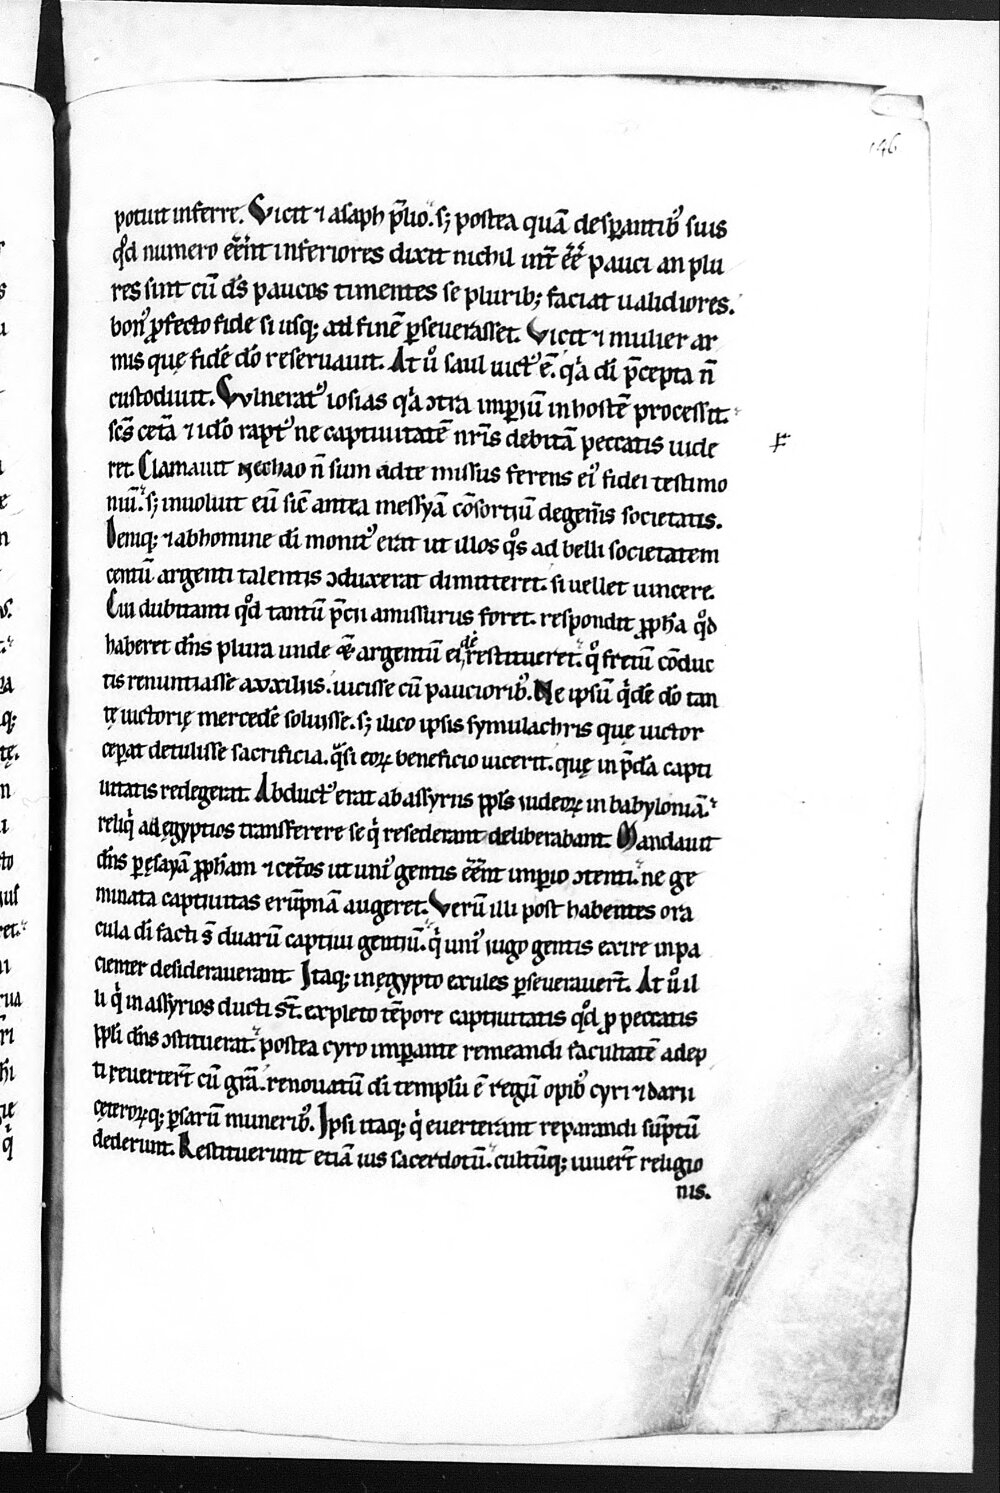 146
potuit inferre. Vicit ⁊ asaph p̄lio. s; postea quā desꝑantib᷒ suis
qd̕ numero eēn̄t inferiores dixit nichil int̄ eē pauci an plu
res sint cū ds̄ paucos timentes se plurib; faciat ualidiores.
bon᷒ ꝓfecto fide si usq; ad finē ꝑseuerasset. Vicit ⁊ mulier ar
mis quę fidē dō reseruauit. At u̕ saul uict᷒ ē. qa̕ di̅ p̄cepta n̄
custodiuit. Vulnerat᷒ iosias qa̕ ↄtra imꝑiū in hostē processit.
scs̄ cet̄a ⁊ ido̅ rapt᷒ ne captiuitatē nr̄is debitā peccatis uide
ret. Clamauit nechao n̄ sum ad te missus ferens ei᷒ fidei testimo
niū. s; inuoluit eū sic̄ antea messyā cōsortiū degen̄is societatis.
Deniq; ⁊ ab homine di̅ monit᷒ erat ut illos qo̕s ad belli societatem
centū argenti talentis ↄduxerat dimitteret. si uellet uincere.
Cui dubitanti qd̕ tantū p̄cii amissurus foret. respondit ꝓph̄a qd̕
haberet dn̄s plura unde & argentū ei de restitueret. qo̕ fretū cōduc
tis renuntiasse auxiliis. uicisse cū paucioribꝫ. Ne ipsū qi̕dē dō tan
tę uictorię mercedē soluisse. s; ilico ipsis symulachris quę uictor
ceꝑat detulisse sacrificia. qa̕si eoꝝ beneficio uicerit. quę in p̄da capti
uitatis redegerat. Abduct᷒ erat ab assyriis ppl̄s iudeoꝝ in babyloniā.
reliqi̕ ad ęgyptios transferere se qi̕ resederant deliberabant. Mandauit
dn̄s ꝑ ęsayā ꝓph̄am ⁊ cet̄os ut uni᷒ gentis eēn̄t imꝑio ↄtenti. ne ge
minata captiuitas erūpnā augeret. Verū illi post habentes ora
cula di̅ facti s̄ duarū captiui gentiū. qi̕ uni᷒ iugo gentis exire inpa
cienter desiderauerant. Itaq; in egypto exules ꝑseuerauer̄t. At u̕ il
li qi̕ in assyrios ducti st̄. expleto tēpore captiuitatis qd̕ ꝓ peccatis
ppl̄i dn̄s ↄstituerat. postea cyro imꝑante remeandi facultatē adep
ti reuerter̄t cū grā. renouatū di̅ templū ē regū opib᷒ cyri ⁊ darii
cęteroꝝq; ꝑsarū munerib᷒. Ipsi itaq; qi̕ euerterant reparandi sūptū
dederunt. Restituerunt etiā ius sacerdotū. cultūq; iuuer̄t religio
nis.